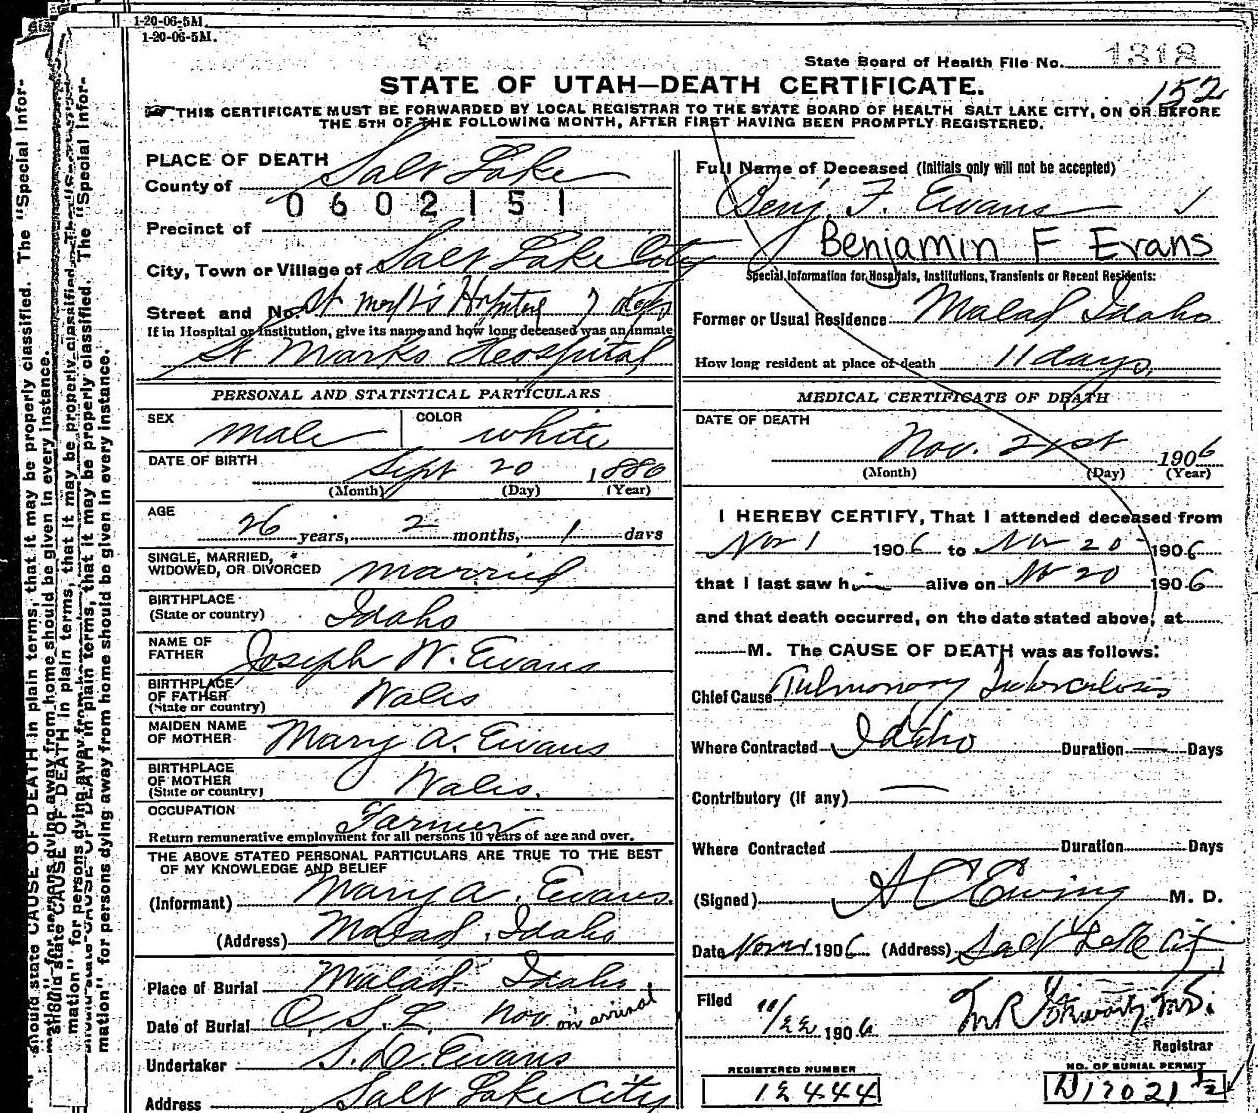 1-20-06-5M
1-20-06-5M.
State Board of Health File No. 1318
STATE OF UTAH—DEATH CERTIFICATE.
152
THIS CERTIFICATE MUST BE FORWARDED BY LOCAL REGISTRAR TO THE STATE BOARD OF HEALTH SALT LAKE CITY, ON OR BEFORE
THE 5TH OF THE FOLLOWING MONTH, AFTER FIRST HAVING BEEN PROMPTLY REGISTERED.
PLACE OF DEATH
County of Salt Lake
0602151
Precinct of
City, Town or Village of Salt Lake City
Street and No. St Mark's Hospital 7 days
If in Hospital or Institution, give its name and how long deceased was an inmate
St Marks Hospital
PERSONAL AND STATISTICAL PARTICULARS
SEX male COLOR white
DATE OF BIRTH Sept 20 1880
(Month) (Day) (Year)
AGE 26 years, 2 months, 1 days
SINGLE, MARRIED,
WIDOWED, OR DIVORCED married
BIRTHPLACE
(State or country) Idaho
NAME OF
FATHER Joseph W. Evans
BIRTHPLACE
OF FATHER
(State or country) Wales
MAIDEN NAME
OF MOTHER Mary A. Evans
BIRTHPLACE
OF MOTHER
(State or country) Wales.
OCCUPATION Farmer
Return remunerative employment for all persons 10 years of age and over.
THE ABOVE STATED PERSONAL PARTICULARS ARE TRUE TO THE BEST
OF MY KNOWLEDGE AND BELIEF
(Informant) Mary A. Evans.
(Address) Malad, Idaho
Place of Burial Malad Idaho
Date of Burial O. S. L. Nov on arrival
Undertaker S. D. Evans
Address Salt Lake City
Full Name of Deceased (Initials only will not be accepted)
Benj. F. Evans
Benjamin F Evans
Special Information for Hospitals, Institutions, Transients or Recent Residents:
Former or Usual Residence Malad Idaho
How long resident at place of death 11 days,
MEDICAL CERTIFICATE OF DEATH
DATE OF DEATH
Nov. 21st 1906
(Month) (Day) (Year)
I HEREBY CERTIFY, That I attended deceased from
Nov 1 1906 to Nov 20 1906
that I last saw him alive on No 20 1906
and that death occurred, on the date stated above, at
M. The CAUSE OF DEATH was as follows:
Chief Cause Pulmonary Tuberculosis
Where Contracted Idaho Duration — Days
Contributory (if any) —
Where Contracted Duration Days
(Signed) A C Ewing M. D.
Date 1906 (Address) Salt Lake City
Filed 11/22 1906
M.D.
Registrar
REGISTERED NUMBER
12444
NO. OF BURIAL PERMIT
D17021 1/2
should state CAUSE OF DEATH in plain terms, that it may be properly classified. The "Special Infor-
mation" for persons dying away from home should be given in every instance.
should state CAUSE OF DEATH in plain terms, that it may be properly classified. The "Special Infor-
mation" for persons dying away from home should be given in every instance.